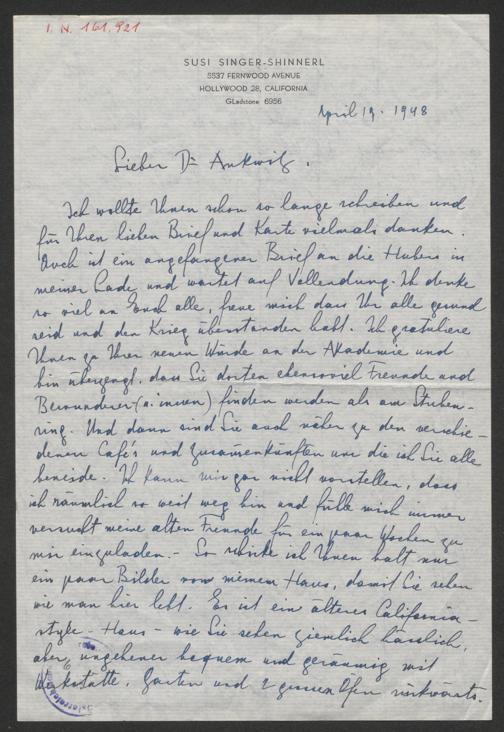 I. N. 161.921
SUSI SINGER-SHINNERL
5537 FERNWOOD AVENUE
HOLLYWOOD 28, CALIFORNIA
GLadstone 6956
April 19. 1948
Lieber Dr Ankwitz,
Ich wollte Ihnen schon so lange schreiben und
für Ihren lieben Brief und Karte vielmals danken.
Auch ist ein angefangener Brief an die Hubers in
meiner Lade und wartet auf Vollendung. Ich denke
so viel an Euch alle, freue mich dass Ihr alle gesund
seid und den Krieg überstanden habt. Ich gratuliere
Ihnen zu Ihrer neuen Würde an der Akademie und
bin überzeugt, dass Sie dorten ebensoviel Freunde und
Bewunderer (a: innen) finden werden als am Stuben-
ring. Und dann sind Sie auch näher zu den verschie-
denen Cafés und Zusammenkünften um die ich Sie alle
beneide. Ich kann mir gar nicht vorstellen, dass
ich räumlich so weit weg bin und fühle mich immer
versucht meine alten Freunde für ein paar Wochen zu
mir einzuladen. - So schicke ich Ihnen halt nur
ein paar Bilder von meinem Haus, damit Sie sehen
wie man hier lebt. Es ist ein älteres California-
style Haus - wie Sie sehen ziemlich hässlich,
aber ungeheuer bequem und geräumig mit
Werkstatte, Garten und 2 grossen Öfen rückwärts.